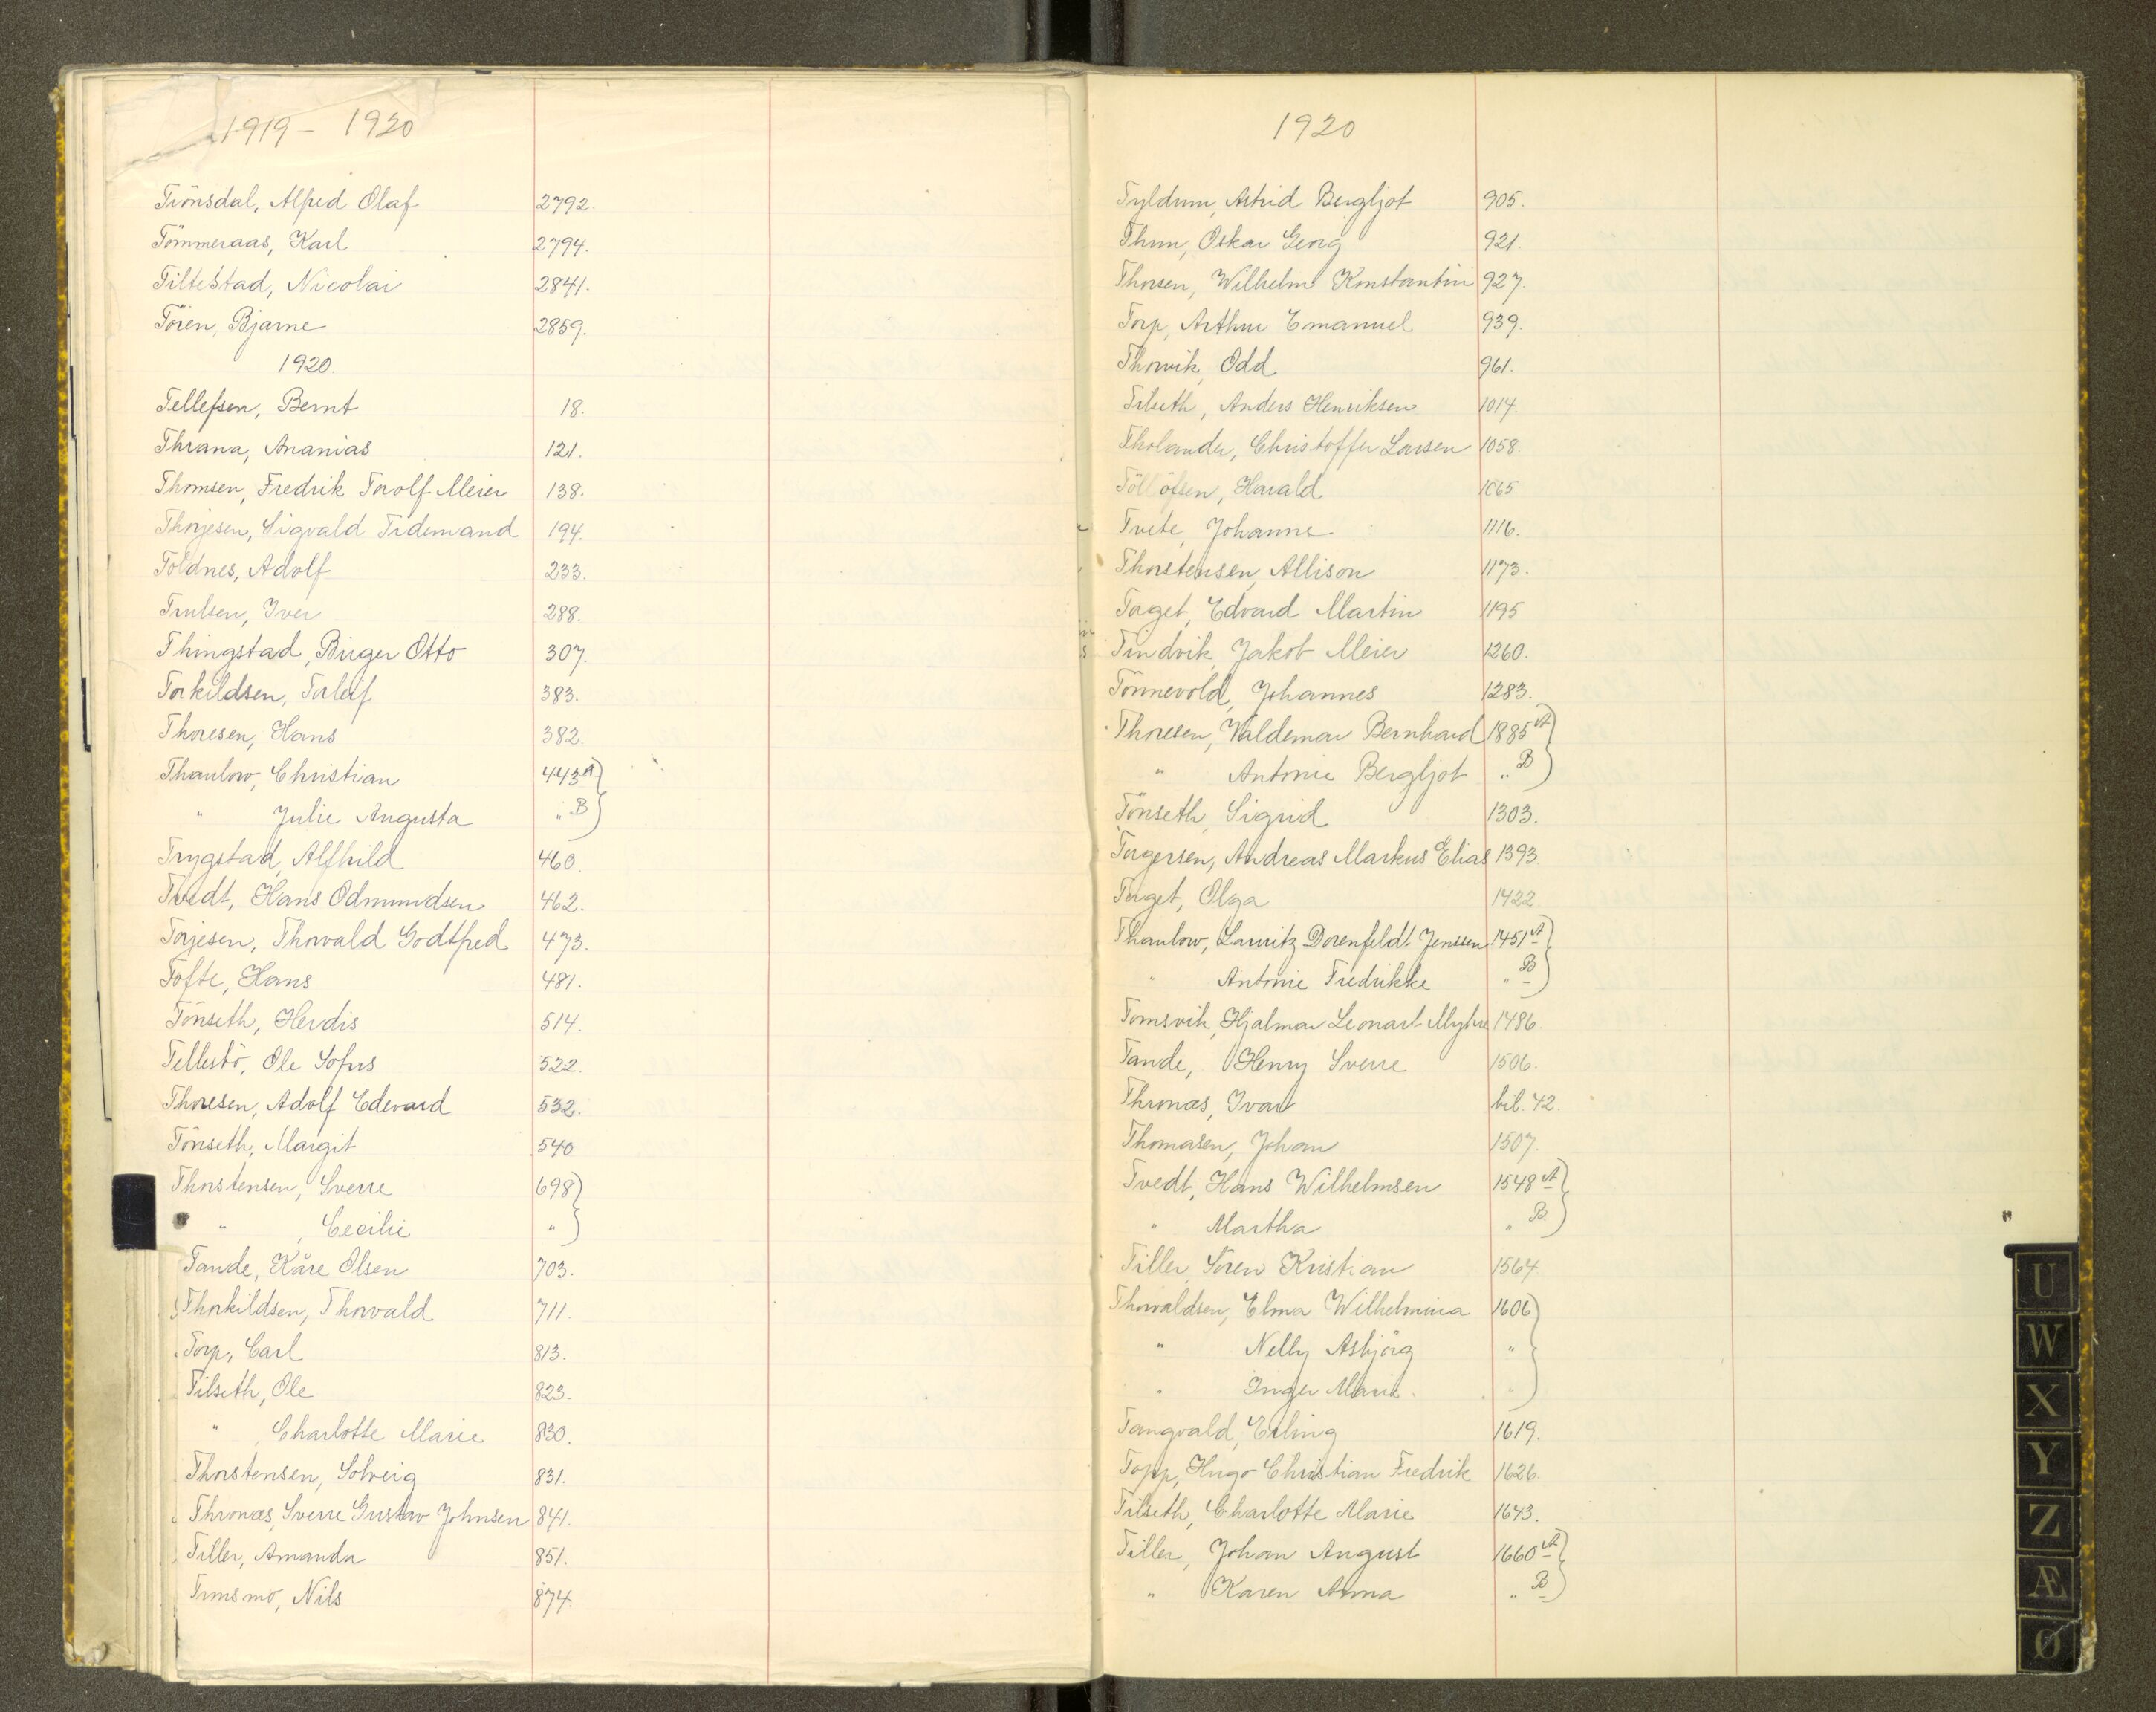 1919 - 1920
Trönsdal, Alfred Olaf 2792.
Tömmeraas, Karl 2794.
Tiltestad, Nicolai 2841.
Tören, Bjarne 2859.
1920.
Tellefsen, Bernt 18.
Thrana, Ananias 121.
Thomsen, Fredrik Torolf Meier 138.
Thorjesen, Sigvald Tidemand 194.
Toldnes, Adolf 233.
Trulsen, Iver 288.
Thingstad, Birger Otto 307.
Torkildsen, Torleif 383.
Thoresen, Hans 382.
Thaulow, Christian 443 A
" Julie Augusta " B
Trygstad, Alfhild 460.
Tvedt, Hans Odmundsen 462.
Torjesen, Thorvald Godtfred 473.
Tofte, Hans 481.
Tönseth, Herdis 514.
Tellestö, Ole Sofus 522.
Thoresen, Adolf Edevard 532.
Tönseth, Margit 540
Thorstensen, Sverre 698
" , Cecilie "
Tande, Kåre Olsen 703.
Thorkildsen, Thorvald 711.
Torp, Carl 813.
Tilseth, Ole 823.
" , Charlotte Marie 830.
Thorstensen, Solveig 831.
Thronæs, Sverre Gustav Johnsen 841.
Tiller, Amanda 851.
Nils 874.
1920
Tyldrum, Astrid Bergljot 905.
Thun, Oskar Georg 921.
Thorsen, Wilhelm Konstantin 927.
Torp, Arthur Emanuel 939.
Thorvik, Odd 961.
Tilseth, Anders Henriksen 1014.
Tholander, Christoffer Larsen 1058.
Töllöfsen, Harald 1065
Tvete, Johanne 1116.
Thorstensen, Allison 1173.
Torget, Edvard Martin 1195
Tindvik, Jakob Meier 1260.
Tönnevold, Johannes 1283.
Thoresen, Valdemar Bernhard 1885 A
" Antonie Bergljot " B
Tönseth, Sigrid 1303.
Torgersen, Andreas Markus Elias 1393
Torget, Olga 1422.
Thaulow, Lauritz Dorenfeldt Jenssen 1451 A
" Antonie Fredrikke " B
Tomsvik, Hjalmar Leonart Myhre 1486.
Tande, Henry Sverre 1506.
Thronæs, Ivar bil. 42.
Thomasen, Johan 1507.
Tvedt, Hans Wilhelmsen 1548 A
" Martha " B.
Tiller, Sören Kristian 1564.
Thorvaldsen, Elma Wilhelmina 1606
" Nelly Asbjörg "
" Inger Marie. "
Tangvald, Erling 1619.
Topp, Hugo Christian Fredrik 1626.
Tilseth, Charlotte Marie 1643.
Tiller, Johan August 1660 A
" Karen Anna " B
U
W
X
Y
Z
Æ
Ø